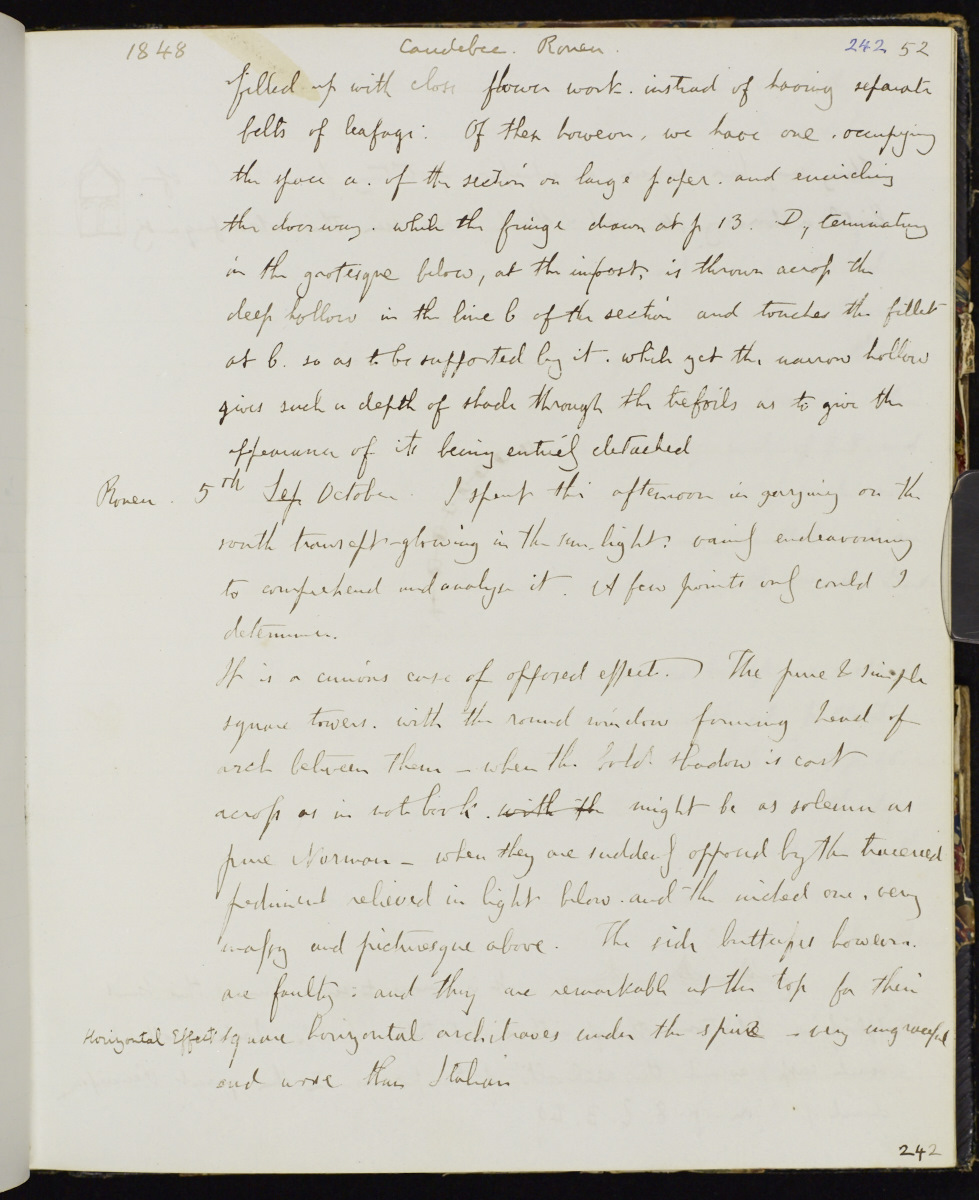 1848 Caudebec. Rouen. 242 52
filled up with close flower work. instead of having separate
belts of leafage. Of these however, we have one. occupying
the space a. of the section on large paper. and encircling
the doorway. while the fringe drawn at p 13. D, terminating
in the grotesque below, at the impost, is thrown across the
deep hollow in the line b of the section and touches the fillet
at b. so as to be supported by it. while yet the narrow hollow
gives such a depth of shade through the trefoils as to give the
appearance of its being entirely detached
Rouen. 5th Sep October. I spent this afternoon in gazing on the
south transept - glowing in the sun-light. vainly endeavouring
to comprehend and analyse it. A few points only could I
determine.
It is a curious case of opposed effect. The pure & simple
square towers. with the round window forming head of
arch between them - when the bold shadow is cast
across as in note book. with the might be as solemn as
pure Norman - when they are suddenly opposed by the traceried
pediment relieved in light below. and the niched one, very
massy and picturesque above. The side buttresses however.
are faulty: and they are remarkable at the top for their
Horizontal Effect square horizontal architraves under the spire - very ungraceful
and worse than Italian
242